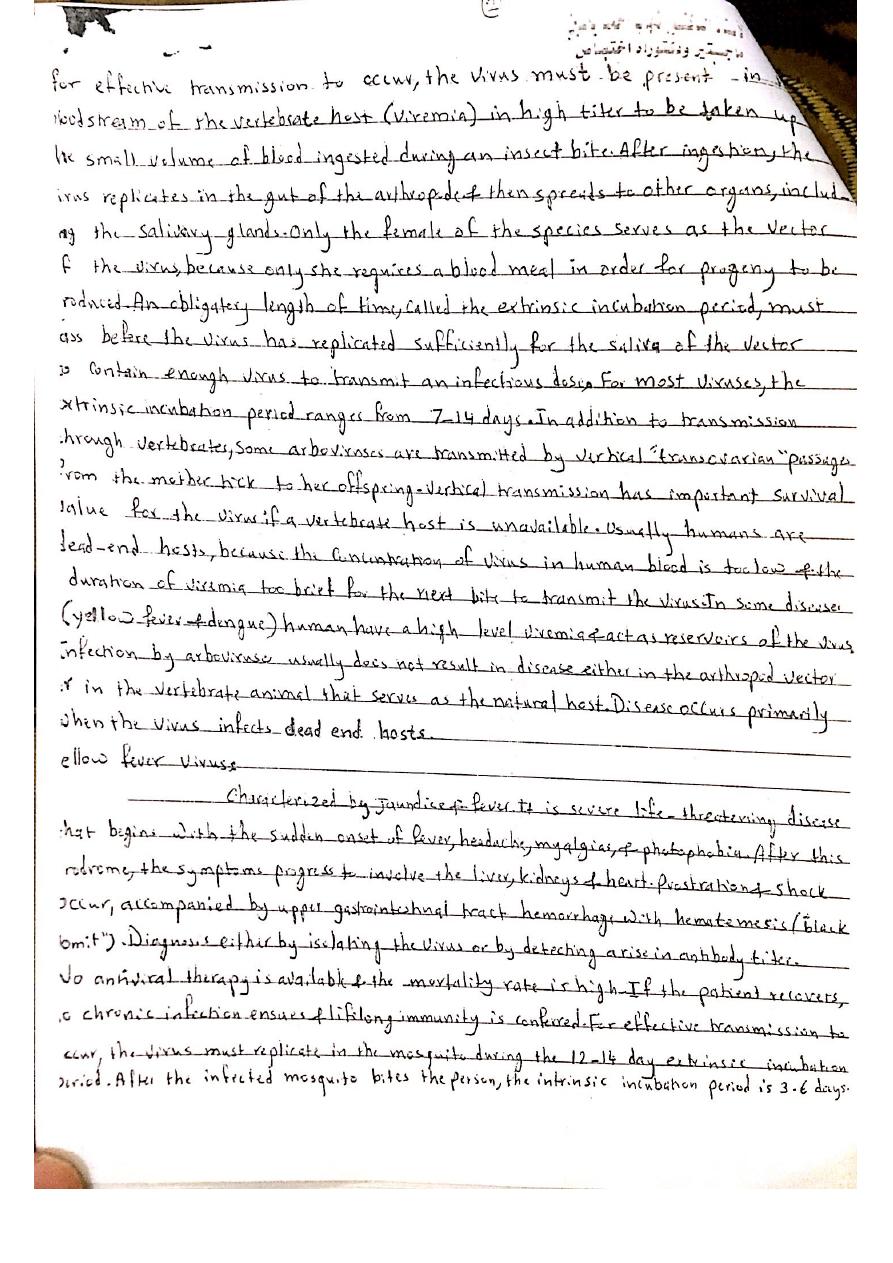 ماجستير ودكتوراه اختصاص
for effective transmission to occur, the virus must be present in
bloodstream of the vertebrate host (viremia) in high titer to be taken up
the small volume of blood ingested during an insect bite. After ingestion, the
irus replicates in the gut of the arthropod & then spreads to other organs, includ
ng the salivary glands. Only the female of the species serves as the vector
f the virus, because only she requires a blood meal in order for progeny to be
roduced. An obligatory length of time, called the extrinsic incubation period, must
ass before the virus has replicated sufficiently for the saliva of the vector
to contain enough virus to transmit an infectious dose. For most viruses, the
xtrinsic incubation period ranges from 7-14 days. In addition to transmission
hrough vertebrates, some arboviruses are transmitted by vertical "transovarian" passage
from the mother tick to her offspring. Vertical transmission has important survival
value for the virus if a vertebrate host is unavailable. Usually humans are
dead-end hosts, because the concentration of virus in human blood is too low & the
duration of viremia too brief for the next bite to transmit the virus. In some diseases
(yellow fever & dengue) human have a high level viremia & act as reservoirs of the virus
infection by arboviruses usually does not result in disease either in the arthropod vector
r in the vertebrate animal that serves as the natural host. Disease occurs primarily
when the virus infects dead end hosts.
ellow fever virus:
Characterized by jaundice & fever. It is severe life-threatening disease
that begins with the sudden onset of fever, headache, myalgias, & photophobia. After this
rodrome, the symptoms progress to involve the liver, kidneys & heart. Prostration & shock
occur, accompanied by upper gastrointestinal tract hemorrhage with hematemesis ("black
vomit"). Diagnosis either by isolating the virus or by detecting a rise in antibody titer.
No antiviral therapy is available & the mortality rate is high. If the patient recovers,
o chronic infection ensues & lifelong immunity is conferred. For effective transmission to
ccur, the virus must replicate in the mosquito during the 12-14 day extrinsic incubation
period. After the infected mosquito bites the person, the intrinsic incubation period is 3-6 days.